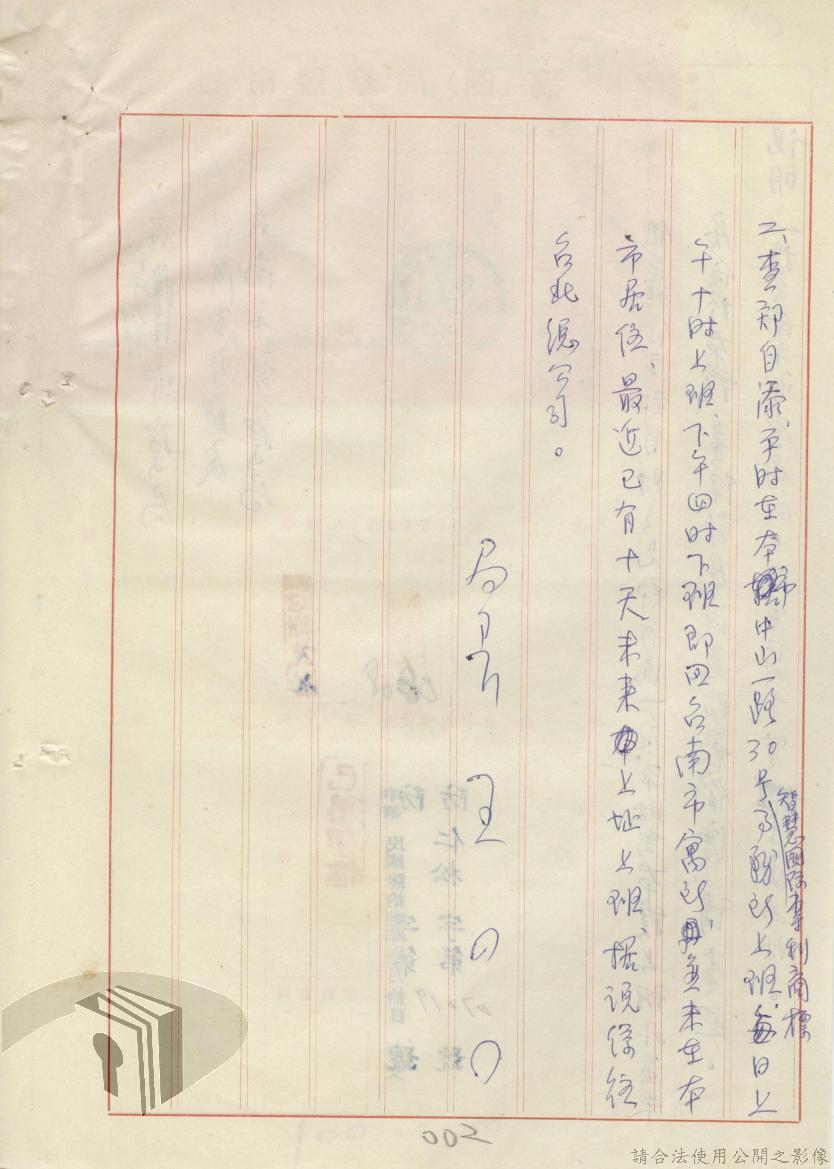 二、查郑自添、平时在本市中山一路30号智慧國际專利商標事務所上班、每日上
午十时上班、下午四时下班即回台南市寓所、並未在本
市居住、最近已有十天未来上址上班、据说係往
台北總公司。
局長 王〇〇
002
請合法使用公開之影像